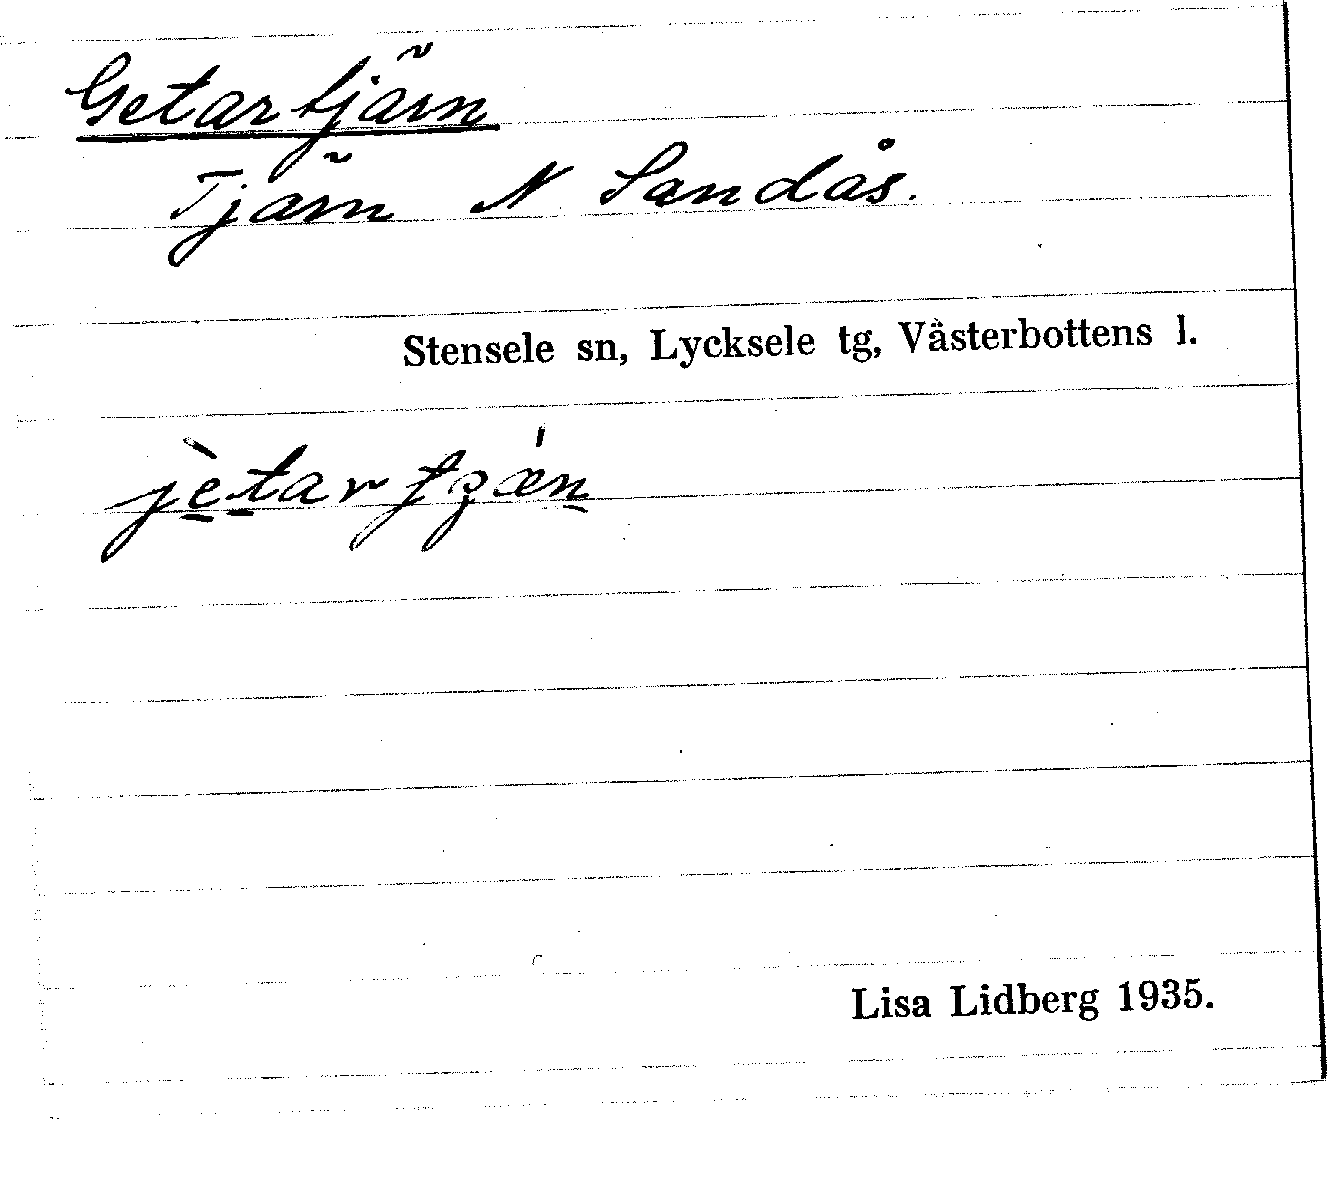 Getartjärn
Tjärn N Sandås.
Stensele sn, Lycksele tg, Västerbottens l.
Lisa Lidberg 1935.